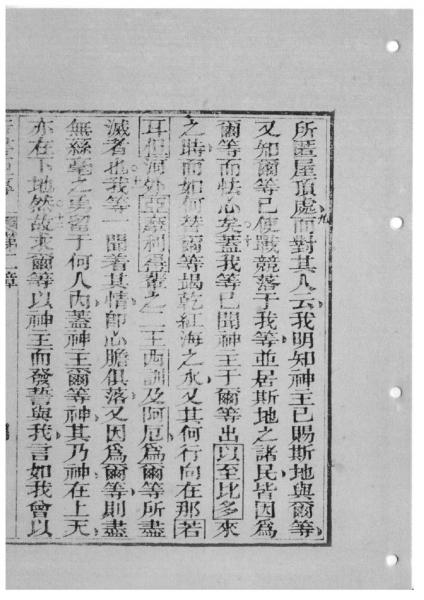 所匿屋頂處而對其人云我明知神王已賜斯地與爾等
又知爾等已使戰競落于我等並居斯地之諸民皆因為
爾等而怯心矣蓋我等已聞神王于爾等出以至比多來
之時而如何替爾等竭乾紅海之水又其何行向在那若
耳但河外亞摩利輩之二王西訓及阿厄為爾等所盡
滅者也我等一聞着其情即心膽俱落又因為爾等則盡
無絲毫之勇留于何人內蓋神王爾等神其乃神在上天
亦在下地然故求爾等以神王而發誓與我言如我曾以
第二章